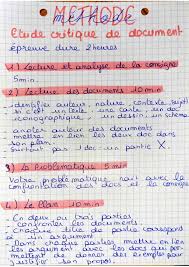 METHODE
méthode
Etude critique de document
épreuve dure 2 heures
1) Lecture et analyse de la consigne
5 min.
2) Lecture des documents 10 min.
-identifier auteur, nature, contexte, sujet
si c'est un texte, une carte, un doc
iconographique, un dessin, un schéma
anoter autour des documents
mettre en lien les deux doc dans
son plan.
Surtout pas 1 doc. un partie X
3) La Problématique 5 min
Votre problématique nait avec la
confrontation des docs et la consigne
4) Le Plan 10 min.
- En deux ou trois parties
confronter les documents
- chaque titre de partie correspond
à un argument
- Dans chaques parties, mettre en lien
les argument avec les docs qui per-
mettent de donner des exemples pour
justifier son propos.